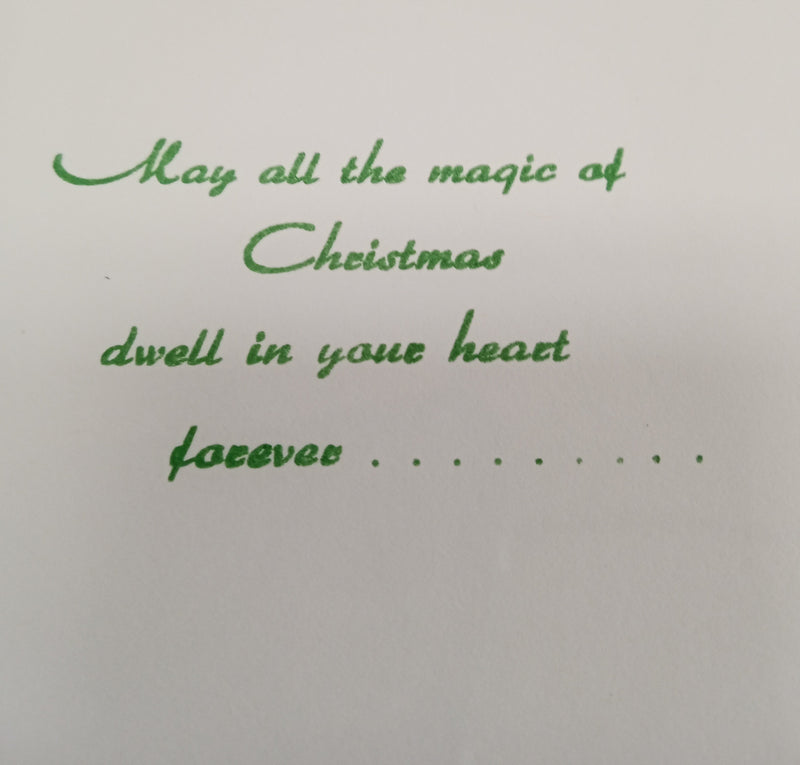 May all the magic of
Christmas
dwell in your heart
forever . . . . . . . . .